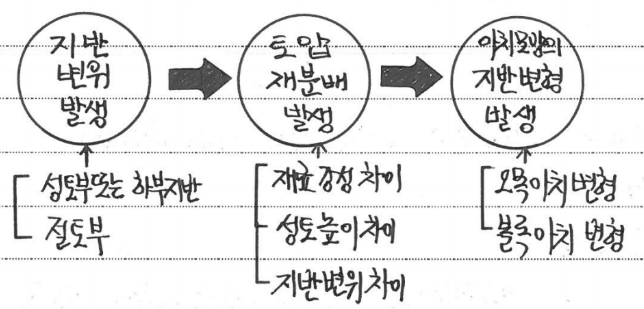 지반
변위
발생
토압
재분배
발생
아치모양의
지반변형
발생
성토부또는 하부지반
절토부
재료강성 차이
성토높이차이
지반변위차이
오목아치변형
볼록아치 변형